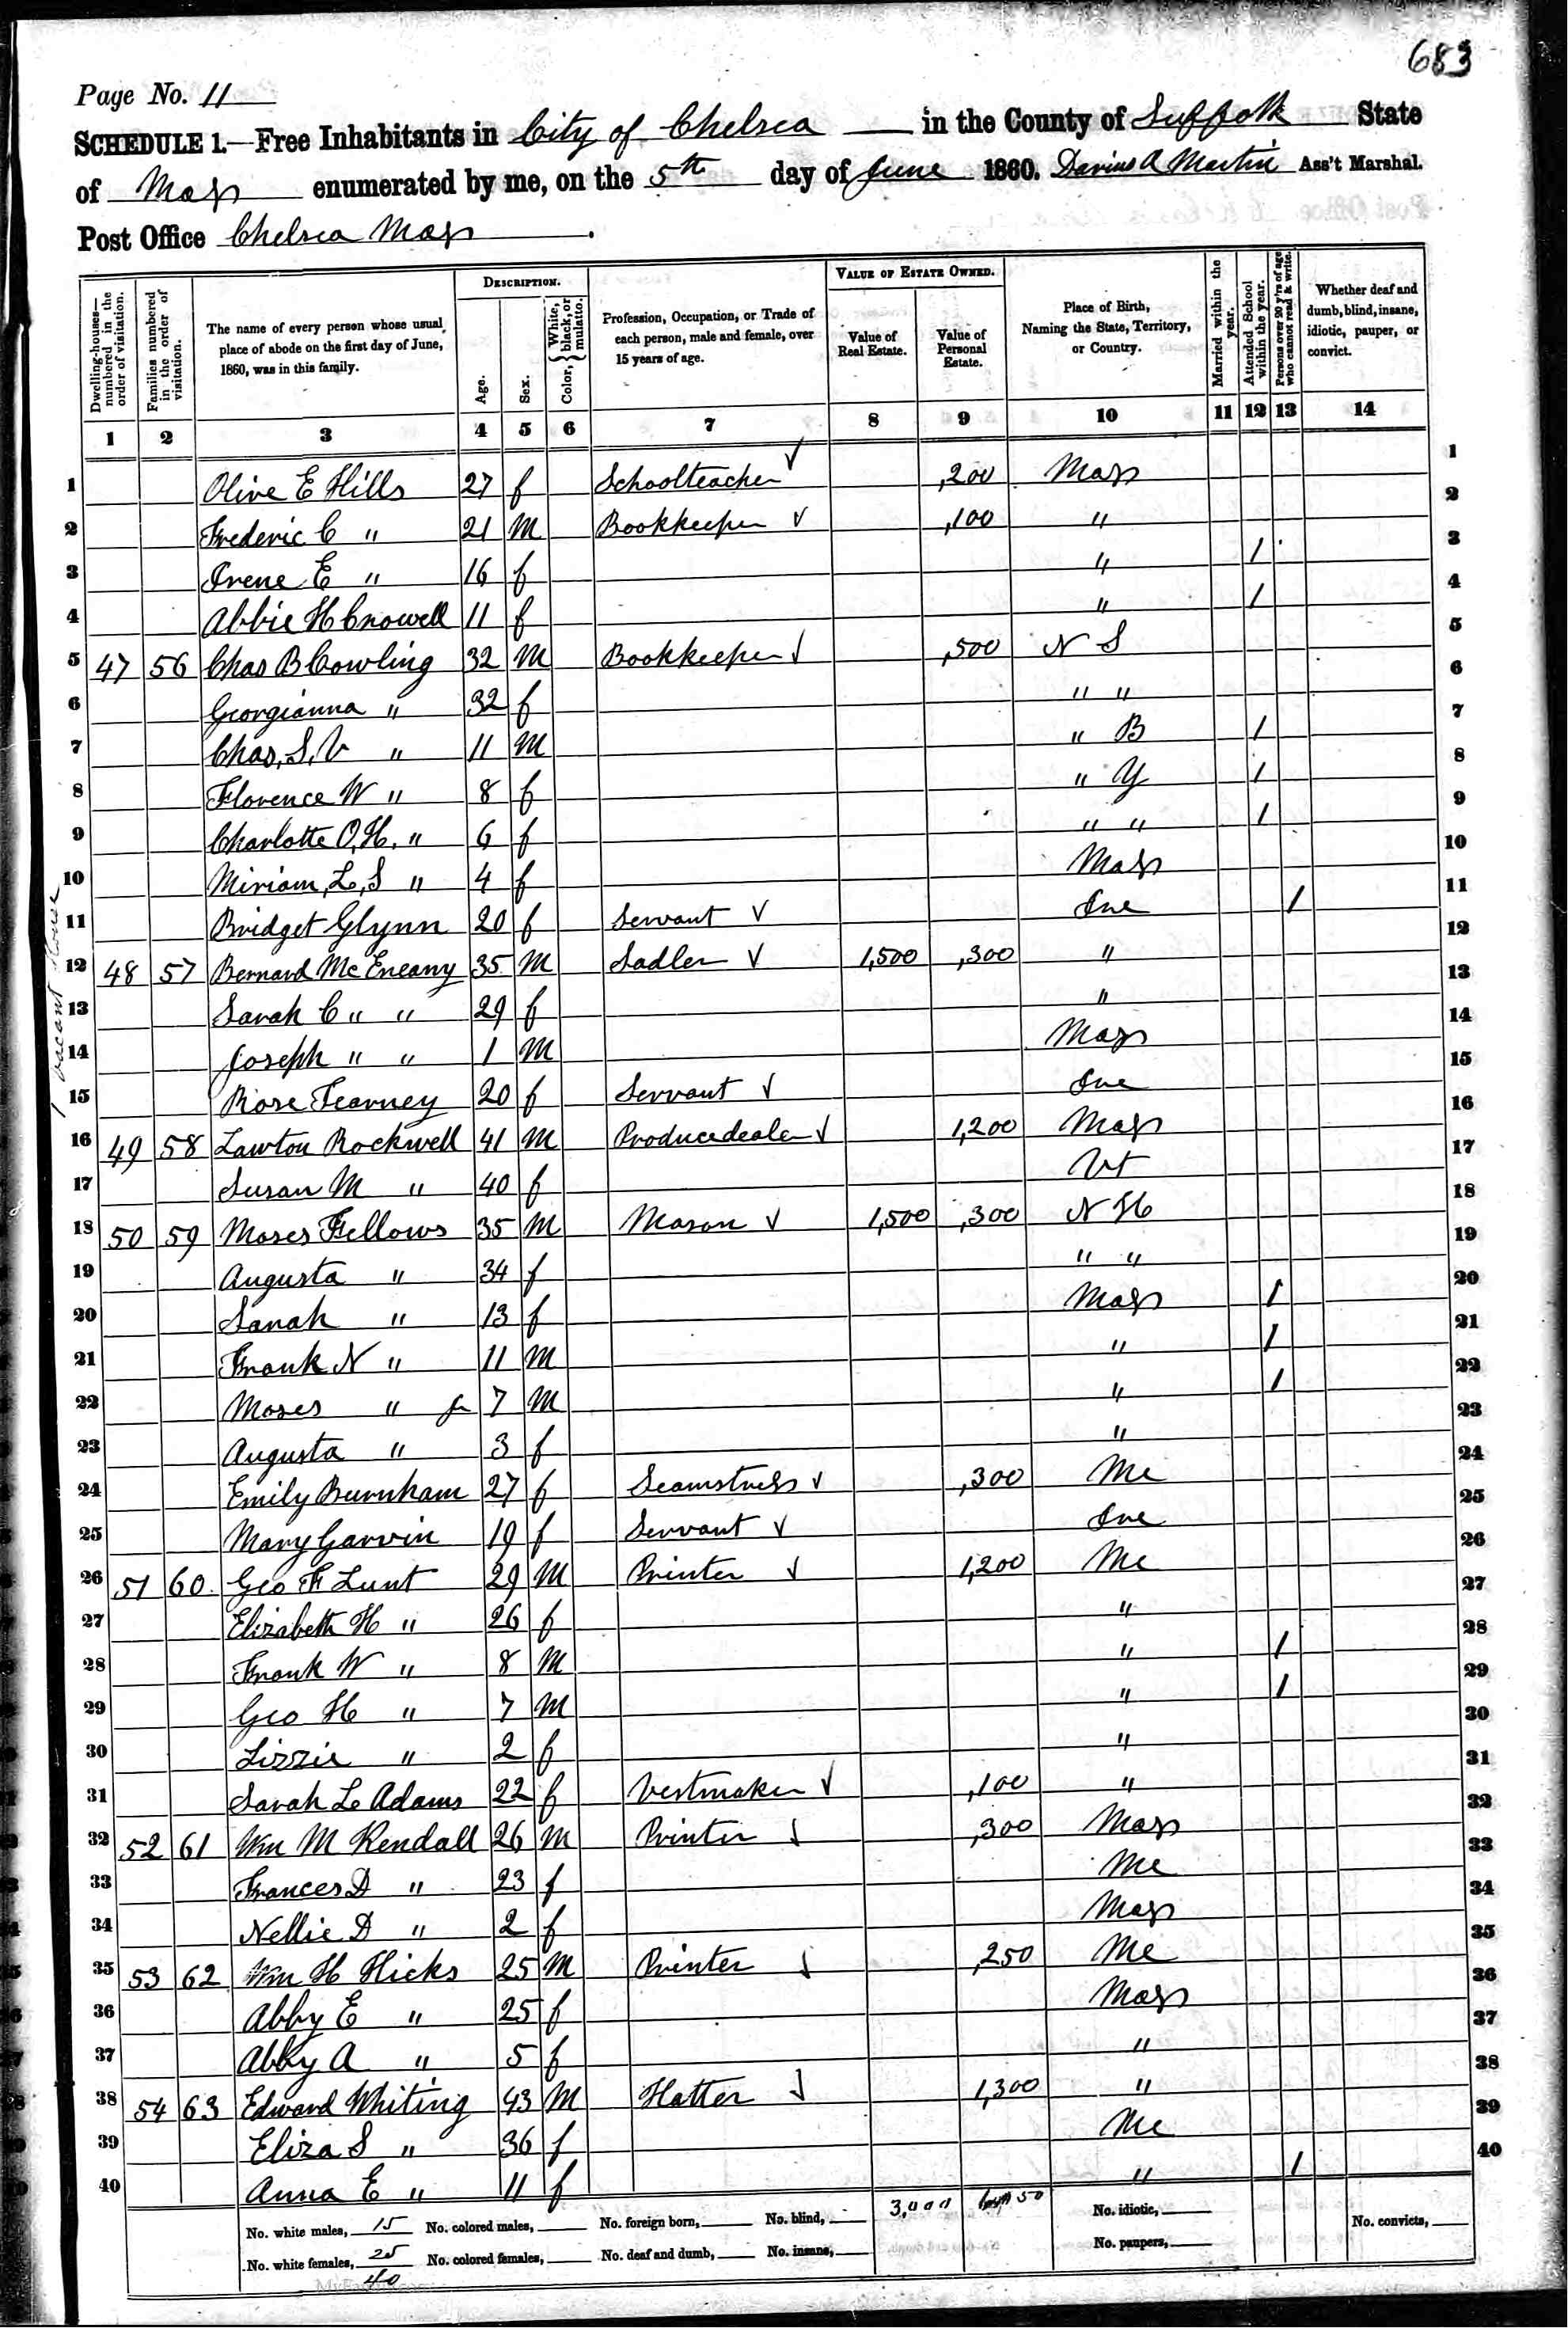 683
Page No. 11
SCHEDULE 1.—Free Inhabitants in City of Chelsea in the County of Suffolk State
of Mass enumerated by me, on the 5th day of June 1860. Darius A Martin Ass't Marshal.
Post Office Chelsea Mass.
Dwelling-houses—numbered in the order of visitation.
Families numbered in the order of visitation.
The name of every person whose usual place of abode on the first day of June, 1860, was in this family.
DESCRIPTION.
Age.
Sex.
Color, { White, black, or mulatto.
Profession, Occupation, or Trade of each person, male and female, over 15 years of age.
VALUE OF ESTATE OWNED.
Value of Real Estate.
Value of Personal Estate.
Place of Birth, Naming the State, Territory, or Country.
Married within the year.
Attended School within the year.
Persons over 20 y'rs of age who cannot read & write.
Whether deaf and dumb, blind, insane, idiotic, pauper, or convict.
1 2 3 4 5 6 7 8 9 10 11 12 13 14
1 Olive E Hills 27 f Schoolteacher ,200 Mass 1
2 Frederic C " 21 M Bookkeeper ,100 " 2
3 Irene E " 16 f " / 3
4 Abbie H Crowell 11 f " / 4
5 47 56 Chas B Cowling 32 M Bookkeeper ,500 N S 5
6 Georgianna " 32 f " " 6
7 Chas, S, V " 11 M " B / 7
8 Florence W " 8 f " Y / 8
9 Charlotte O, H, " 6 f " " / 9
10 Miriam, L, S " 4 f Mass 10
11 Bridget Glynn 20 f Servant Ire / 11
12 48 57 Bernard Mc Eneany 35 M Sadler 1,500 ,300 " 12
13 Sarah C " " 29 f " 13
14 Joseph " " 1 M Mass 14
15 Rose Fearney 20 f Servant Ire 15
16 49 58 Lawton Rockwell 41 M Producedealer 1,200 Mass 16
17 Susan M " 40 f Vt 17
18 50 59 Moses Fellows 35 M Mason 1,500 ,300 N H 18
19 Augusta " 34 f " " 19
20 Sarah " 13 f Mass / 20
21 Frank N " 11 M " / 21
22 Moses " Jr 7 M " / 22
23 Augusta " 3 f " 23
24 Emily Burnham 27 f Seamstress ,300 Me 24
25 Mary Garvin 19 f Servant Ire 25
26 51 60 Geo F Lunt 29 M Printer 1,200 Me 26
27 Elizabeth H " 26 f " 27
28 Frank W " 8 M " / 28
29 Geo H " 7 M " / 29
30 Lizzie " 2 f " 30
31 Sarah L Adams 22 f Vestmaker ,100 " 31
32 52 61 Wm M Kendall 26 M Printer ,300 Mass 32
33 Frances D " 23 f Me 33
34 Nellie D " 2 f Mass 34
35 53 62 Wm H Hicks 25 M Printer ,250 Me 35
36 Abby E " 25 f Mass 36
37 Abby A " 5 f " 37
38 54 63 Edward Whiting 43 M Hatter 1,300 " 38
39 Eliza S " 36 f Me 39
40 Anna E " 11 f " / 40
1 vacant House
No. white males, 15 No. colored males, No. foreign born, No. blind, 3,000 No. idiotic,
No. white females, 25 No. colored females, No. deaf and dumb, No. insane, No. paupers, No. convicts,
40